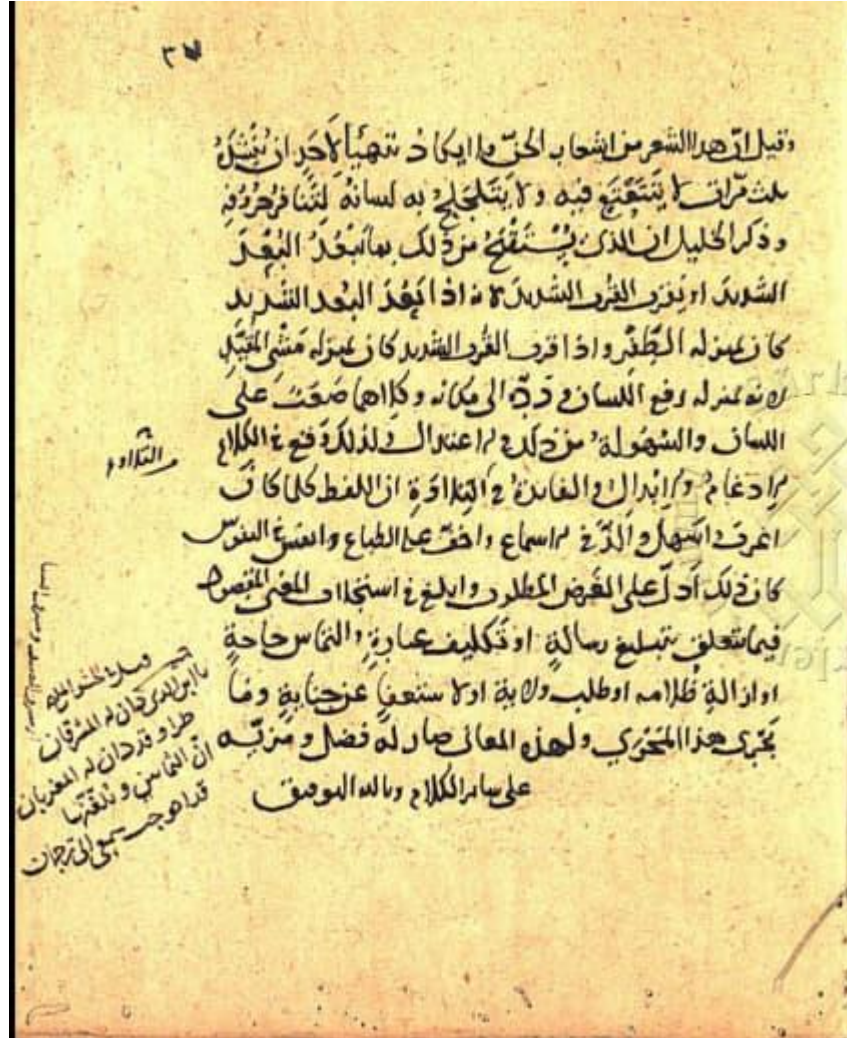 ٣٧
وقيل ان هذا الشعر من اشعار الجنّ ولا يكاد يتهيأ لاحد ان ينشده
ثلث مرات لا يتتعتع فيه ولا يتلجلج به لسانه لتنافر حروفه
وذكر الخليل ان الذى يستقبح من ذلك بما تبعد البعد
الشديد او تقرب القرب الشديد لانه اذا بعد البعد الشديد
كان بمنزله الطفر واذا قرب القرب الشديد كان بمنزله مشى المقيد
لانه بمنزله رفع اللسان وردّه الى مكانه وكلاهما صعب على
اللسان والسهولة من ذلك فى الاعتدال ولذلك وقع فى الكلام
الادغام والابدال والفايدة فى التلاوة ان اللفظ كلما كان
اعرف اسهل والذّ فى الاسماع واخف على الطباع فى النفوس
كان ذلك أدلّ على الغرض المطلوب وابلغ فى المعنى المقصود
فيما يتعلق بتبليغ رسالةٍ او تكليف عبارةٍ والتماس حاجةٍ
او ازالة ظلامه او طلب ولاية او لاستعفا عن جنايةٍ وما
يجرى هذا المجرى ولهذه المعانى صار له فضل ومزيّه
على ساير الكلام وبالله التوفيق
التلاوم
يا ابن الذى دان له المشرقان
طرا وقد دان له المغربان
انّ الثمانين وبلّغتها
قد احوجت سمعى الى ترجمان